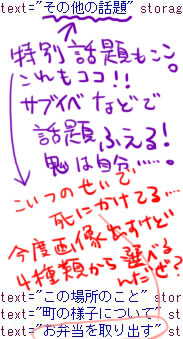 text="その他の話題" storag
特別話題もここ。
これもココ!!
サブイベなどで
話題ふえる!
鬼は自分……。
こいつのせいで
死にかけてる…
今度画像出すけど
4種類から選べる
んだぜ?
text="この場所のこと" storag
text="町の様子について" s
text="お弁当を取り出す" s